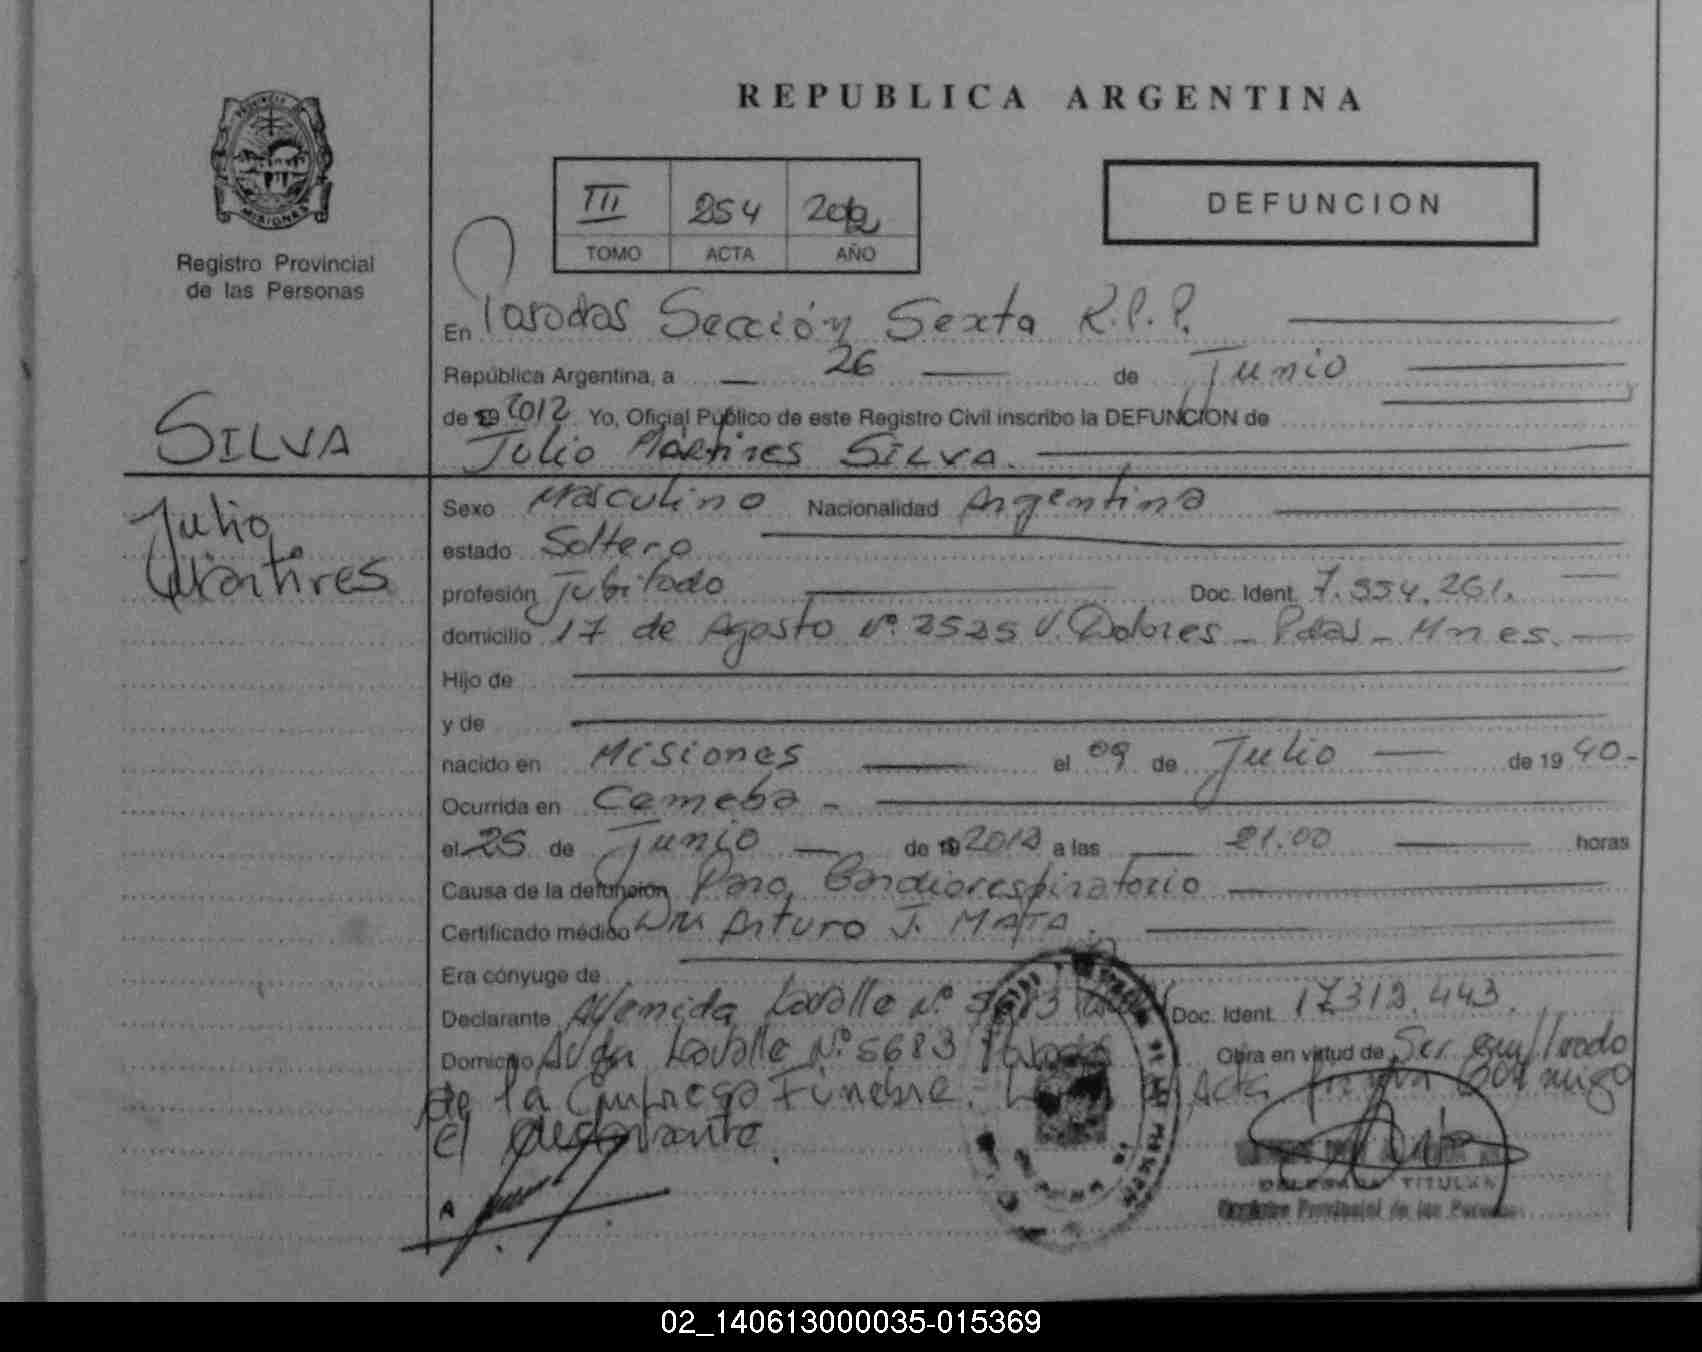 REPUBLICA ARGENTINA
PROVINCIA
MISIONES
Registro Provincial
de las Personas
III 254 2012
TOMO ACTA AÑO
DEFUNCION
En Posadas Sección Sexta R.P.P.
República Argentina, a 26 de Junio
de 19 2012 Yo, Oficial Público de este Registro Civil inscribo la DEFUNCION de
Julio Martires SILVA.
SILVA
Julio
Martires
Sexo Masculino Nacionalidad Argentina
estado Soltero
profesión Jubilado Doc. Ident. 7.554.261.
domicilio 17 de Agosto Nº 2525 V. Dolores - Pdas - Mnes.
Hijo de
y de
nacido en Misiones el 09 de Julio de 19 40.-
Ocurrida en Cemeba -
el 25 de Junio de 19 2012 a las 21.00 horas
Causa de la defunción Paro Cardiorespiratorio
Certificado médico Dr Arturo J. MATA.
Era cónyuge de
Declarante Avenida Lavalle Nº 5683 Doc. Ident. 17312.443.
Domicilio Avda Lavalle Nº 5683 Posadas Obra en virtud de Ser empleado
de la Empresa Funebre. Acta firma conmigo
el declarante.
A
DELEGADA TITULAR
Registro Provincial de las Personas
02_140613000035-015369